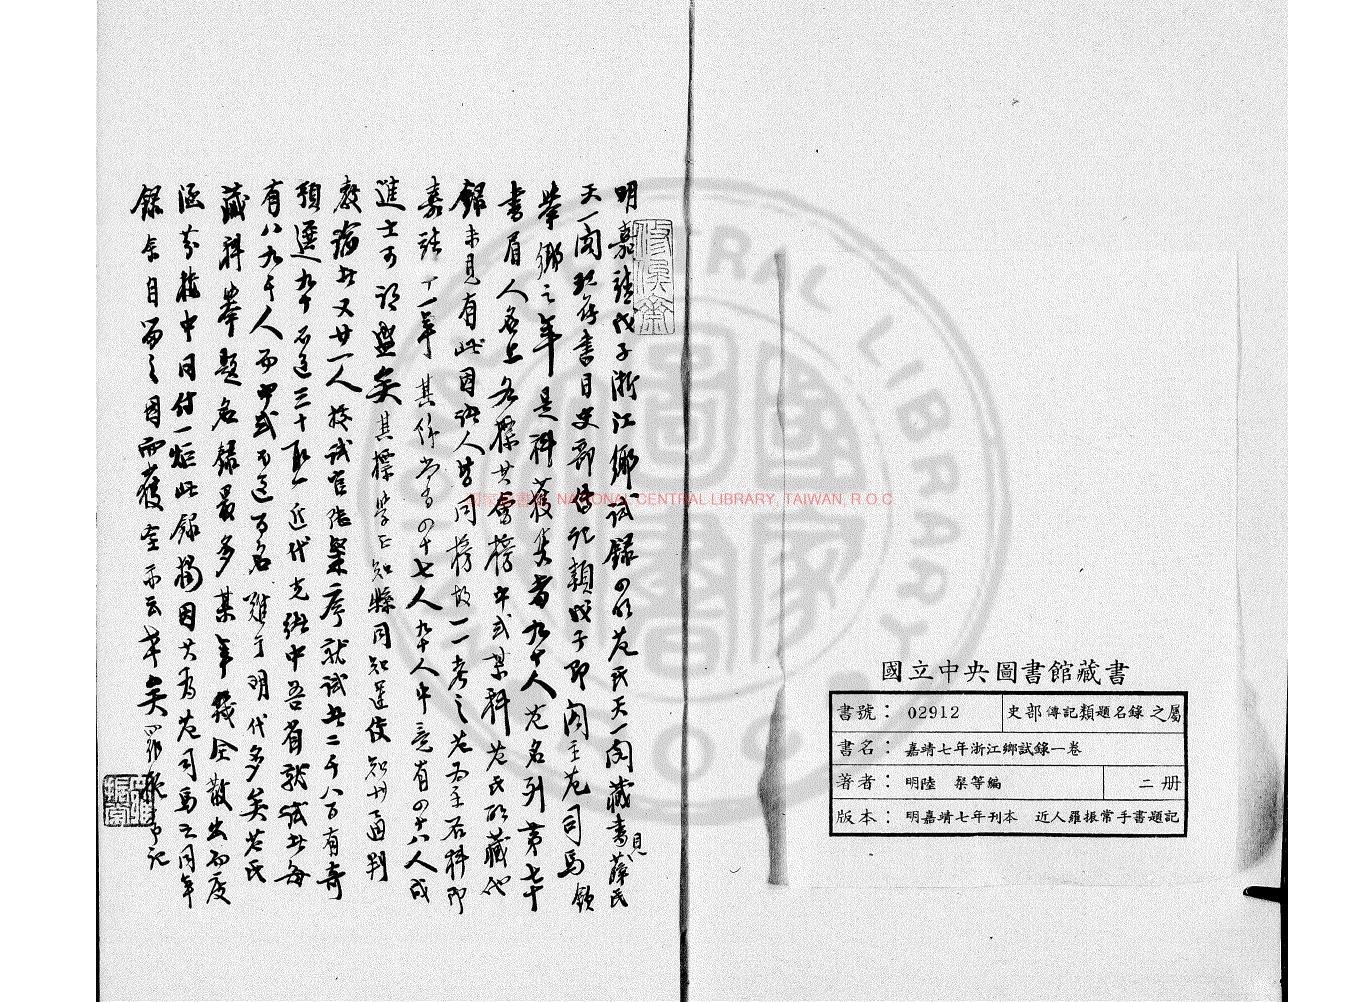 國立中央圖書館藏書
書號： 02912 史部傳記類題名錄之屬
書名： 嘉靖七年浙江鄉試錄一卷
著者： 明陸 粲等編 二册
版本： 明嘉靖七年刊本 近人羅振常手書題記
明嘉靖戊子浙江鄉試錄四明范氏天一閣藏書見薛氏
天一閣現存書目史部傳記類戊子即閣主范司馬欽
舉鄉之年是科獲雋者九十人范名列第七十
書眉人名上各標其會榜中式某科范氏所藏他
錄未見有此因諸人皆同榜故一一考之范為至右科即
嘉靖十一年其作當者四十七人九十人中竟有四十八人成
進士可謂盛矣其標學正知縣同知運使知州通判
教諭者又廿一人按試官張粲序就試者二千八百有奇
預選九十不過三十取一近代光緒中吾省就試者每
有八九千人而中式不過百名難于明代多矣范氏
藏科舉題名錄最多某年幾全散出而度
涵芬樓中同付一炬此錄獨因其為范司馬之同年
錄余自留之因而獲全亦云幸矣羅振常記
修俟齋
NATIONAL CENTRAL LIBRARY, TAIWAN, R.O.C